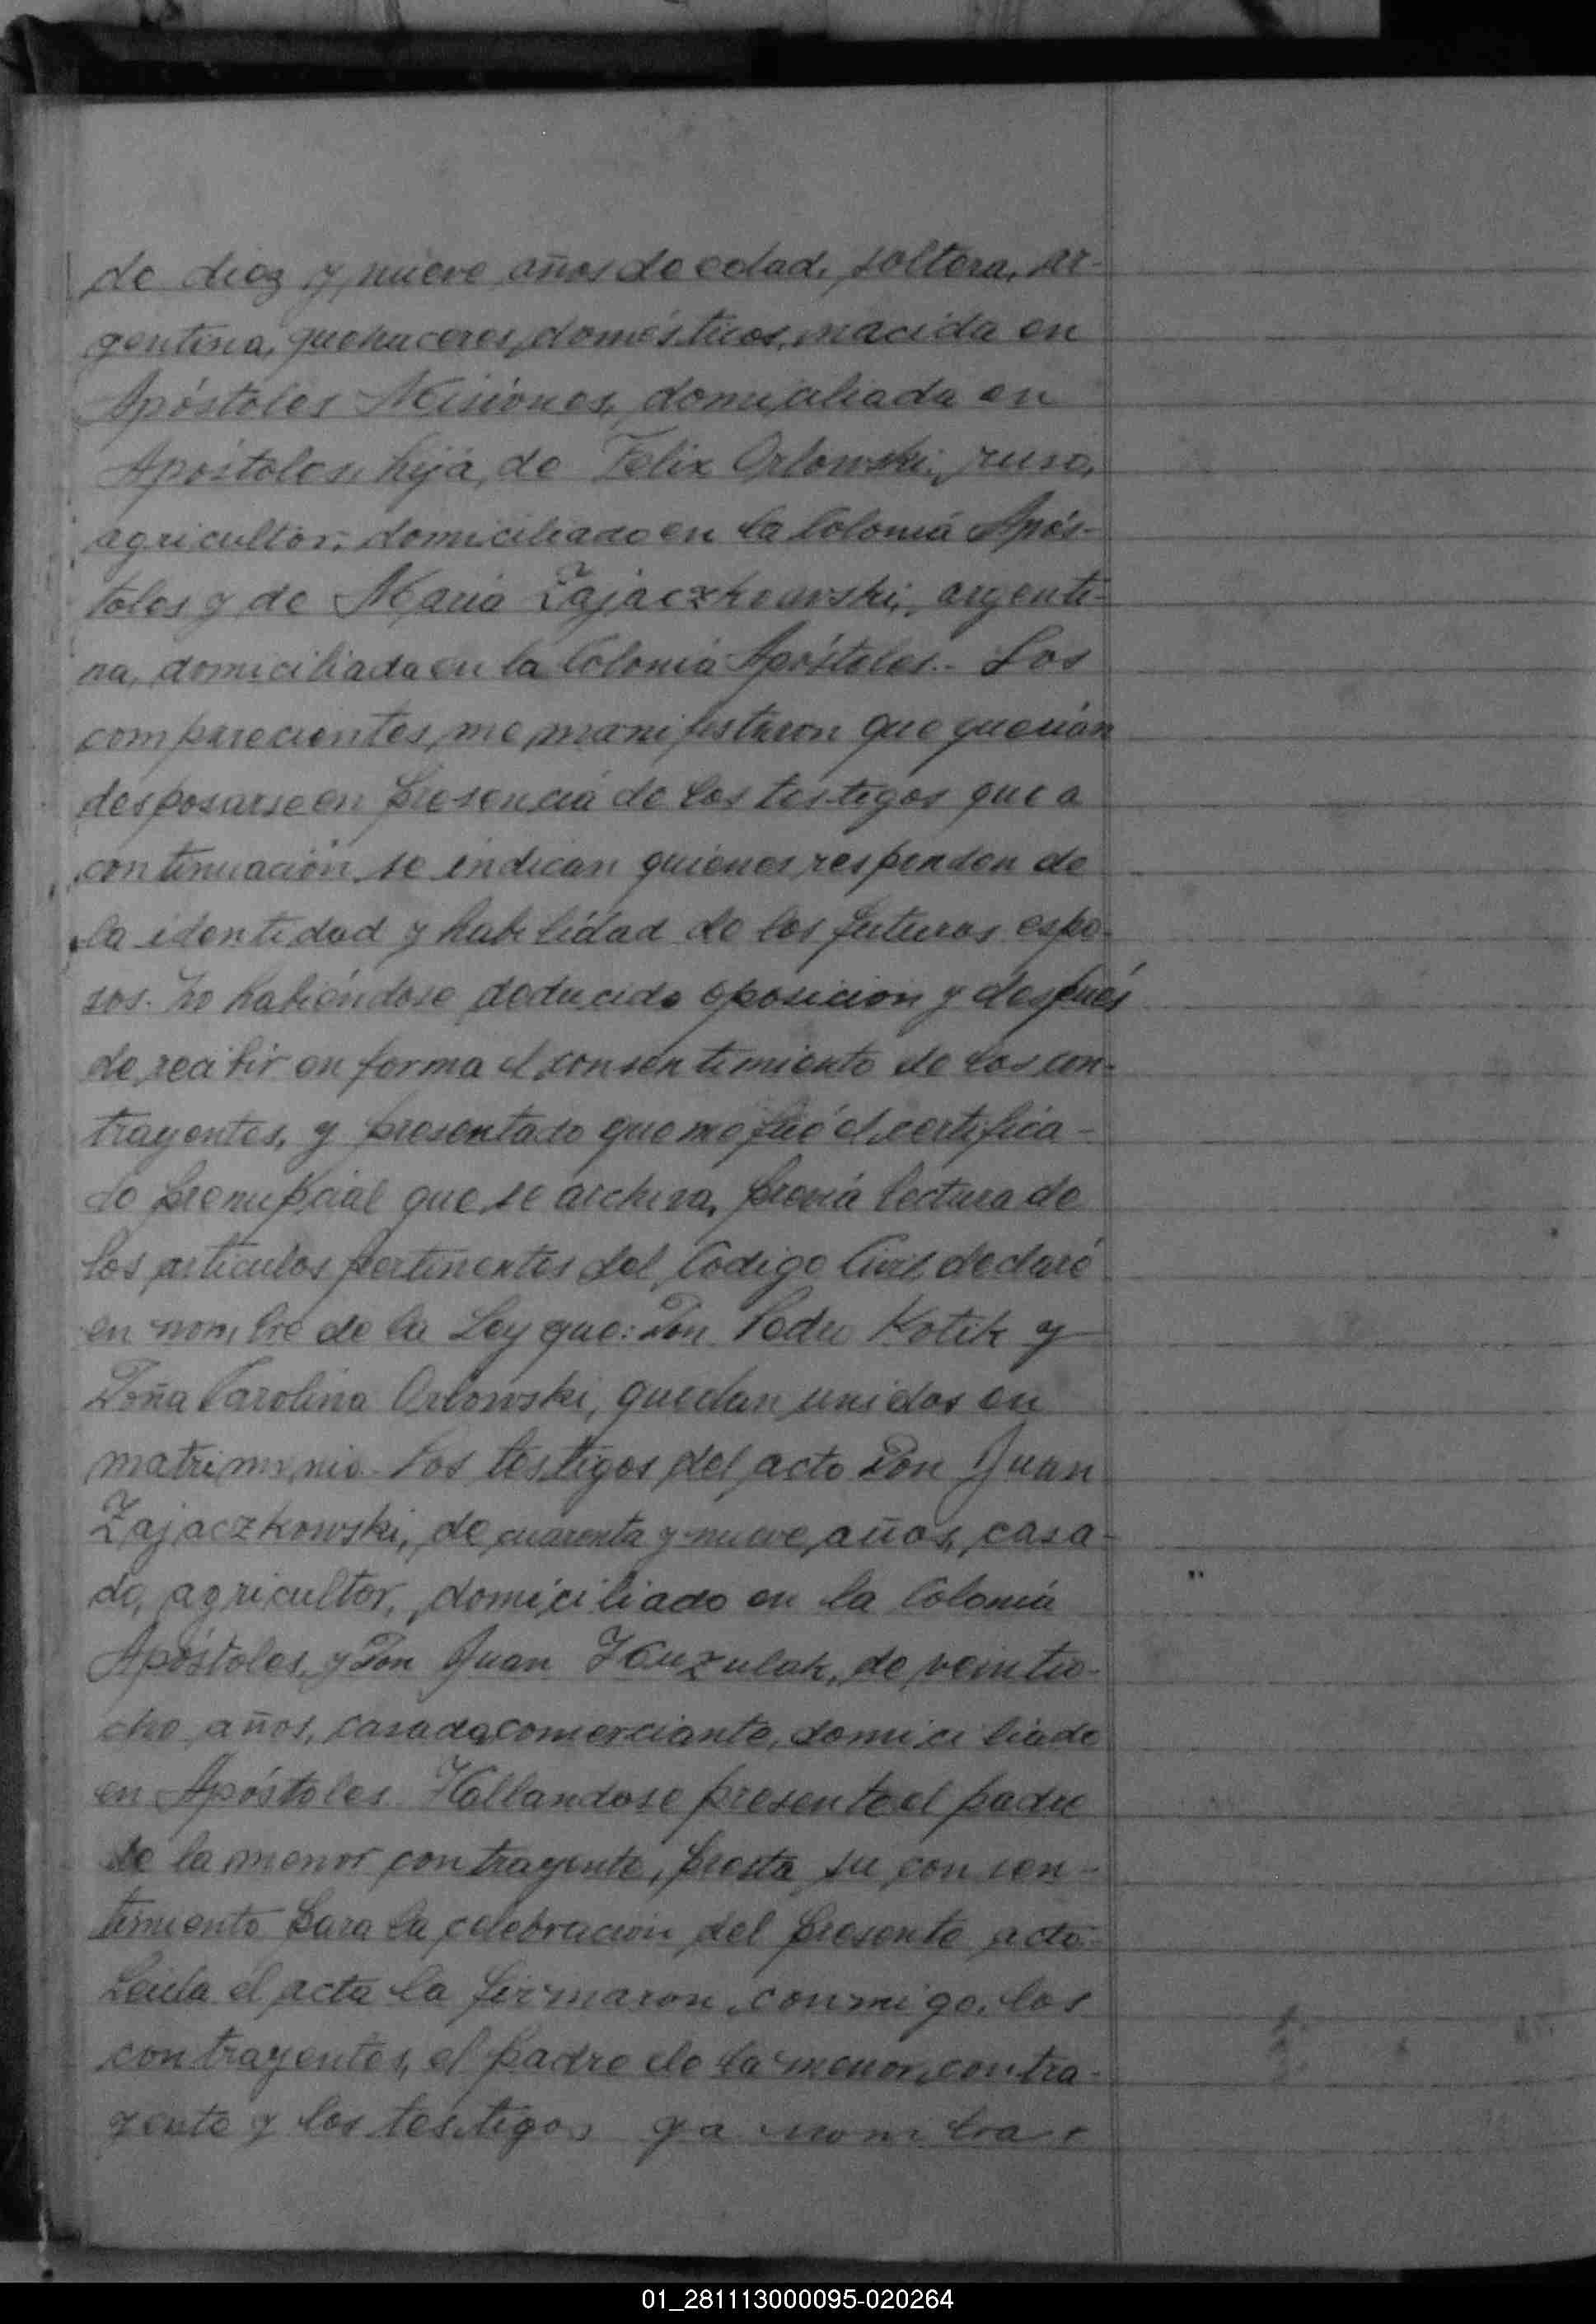 de diez y nueve años de edad, soltera, ar-
gentina, quehaceres domésticos, nacida en
Apóstoles Misiones, domiciliada en
Apóstoles, hija, de Felix Orlowski, ruso,
agricultor, domiciliado en la Colonia Após-
toles y de María Zajaczkowski, argenti-
na, domiciliada en la Colonia Apóstoles.- Los
comparecientes, me manifestaron que querían
desposarse en presencia de los testigos que a
continuación se indican quienes responden de
la identidad y habilidad de los futuros espo-
sos. No habiéndose deducido oposición y después
de recibir en forma el consentimiento de los con-
trayentes, y presentado que me fué el certifica-
do prenupcial que se archiva, previa lectura de
los artículos pertinentes del Codigo Civil, declaré
en nombre de la Ley que: Don Pedro Kotik y
Doña Carolina Orlowski, quedan unidos en
matrimonio. Los testigos del acto Don Juan
Zajaczkowski, de cuarenta y nueve años, casa-
do, agricultor, domiciliado en la Colonia
Apóstoles, y Don Juan de veintio-
cho años, casado, comerciante, domiciliado
en Apóstoles. Hallandose presente el padre
de la menor contrayente, presta su consen-
timiento para la celebración del presente acto.-
Leida el acta la firmaron, conmigo, los
contrayentes, el padre de la menor contra-
yente y los testigos ya nombra
01_281113000095-020264